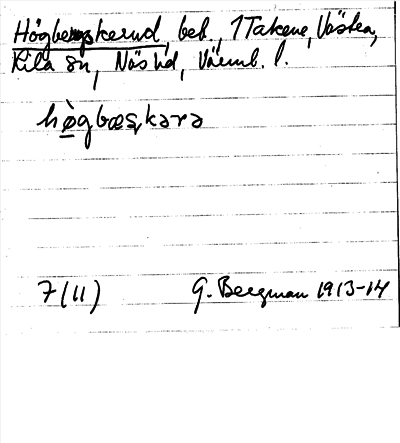 Högbergskerud, beb., 1 Takene, Västra,
Kila sn, Näs hd, Värml. l.
hògbæşkərə
7(11) G. Bergman 1913-14